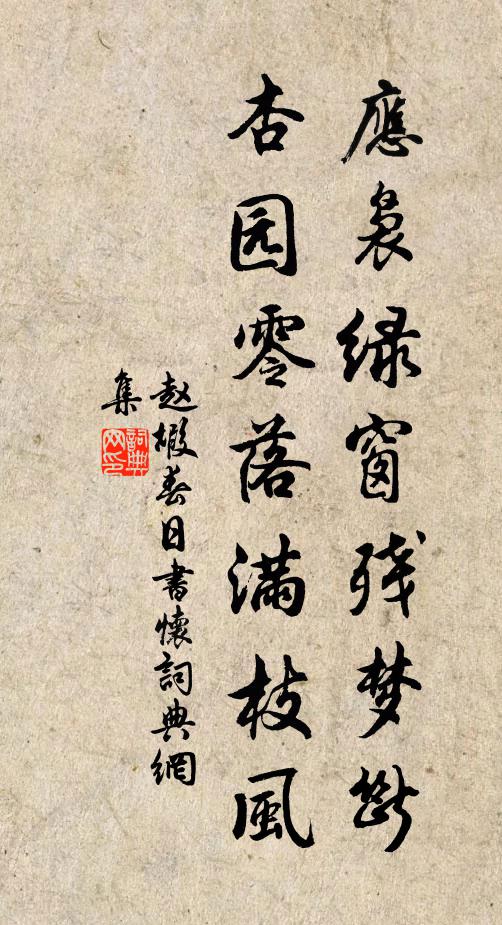 應裊绿窗残梦斷
杏园零落满枝風
赵嘏春日書懷詞典網
集
詞典网印